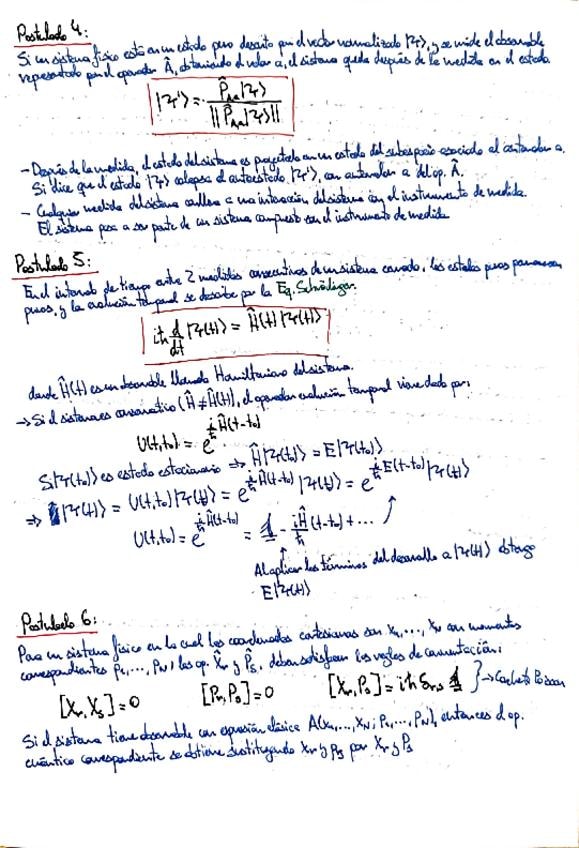 Postulado 4:
Si un sistema físico está en un estado puro descrito por el vector normalizado |Ψ>, y se mide el observable
representado por el operador Â, obteniendo el valor a, el sistema queda después de la medida en el estado.
|Ψ'> = P̂|Ψ> / ||P̂|Ψ>||
- Después de la medida, el estado del sistema es proyectado en un estado del subespacio asociado al autovalor a.
Si dice que el estado |Ψ> colapsa el autoestado |Ψ'>, con autovalor a del op. Â.
- Cualquier medida del sistema conlleva a una interacción del sistema con el instrumento de medida.
El sistema pasa a ser parte de un sistema compuesto con el instrumento de medida
Postulado 5:
En el intervalo de tiempo entre 2 medidas consecutivas de un sistema cerrado, los estados puros permanecen
puros, y la evolución temporal se describe por la Eq. Schrödinger.
iħ d/dt |Ψ(t)> = Ĥ(t)|Ψ(t)>
donde Ĥ(t) es un observable llamado Hamiltoniano del sistema.
→ Si el sistema es conservativo (Ĥ ≠ Ĥ(t)), el operador evolución temporal viene dado por:
U(t,t₀) = e^{i/ħ Ĥ(t-t₀)}
Si |Ψ(t₀)> es estado estacionario ⇒ Ĥ|Ψ(t₀)> = E|Ψ(t₀)>
⇒ |Ψ(t)> = U(t,t₀)|Ψ(t₀)> = e^{i/ħ Ĥ(t-t₀)} |Ψ(t₀)> = e^{i/ħ E(t-t₀)} |Ψ(t)>
U(t,t₀) = e^{i/ħ Ĥ(t-t₀)} = 𝟙 - iĤ/ħ (t-t₀) + ...
Al aplicar los términos del desarrollo a |Ψ(t)> obtengo
E|Ψ(t)>
Postulado 6:
Para un sistema físico en la cual las coordenadas cartesianas son x₁,..., x_N con momentos
correspondientes p₁,..., p_N, los op. X̂r y P̂s, deben satisfacer las reglas de conmutación:
[Xr, Xs] = 0 [Pr, Ps] = 0 [Xr, Ps] = iħ δrs 𝟙 } → Corchete Poisson
Si el sistema tiene observable con expresión clásica A(x₁,..., x_N; p₁,..., p_N), entonces el op.
cuántico correspondiente se obtiene sustituyendo xr y ps por X̂r y P̂s